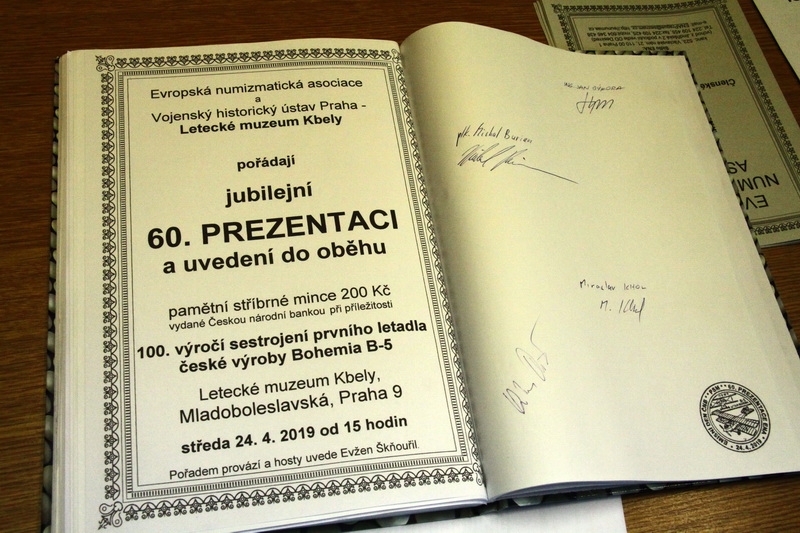 Evropská numizmatická asociace
a
Vojenský historický ústav Praha -
Letecké muzeum Kbely
pořádají
jubilejní
60. PREZENTACI
a uvedení do oběhu
pamětní stříbrné mince 200 Kč
vydané Českou národní bankou při příležitosti
100. výročí sestrojení prvního letadla
české výroby Bohemia B-5
Letecké muzeum Kbely,
Mladoboleslavská, Praha 9
středa 24. 4. 2019 od 15 hodin
Pořadem provází a hosty uvede Evžen Škňouřil.
plk. Michal Burian
Miroslav KHOL
M. Khol
60. PREZENTACE ENA
24.4.2019
Členské
EV
NUM
AS